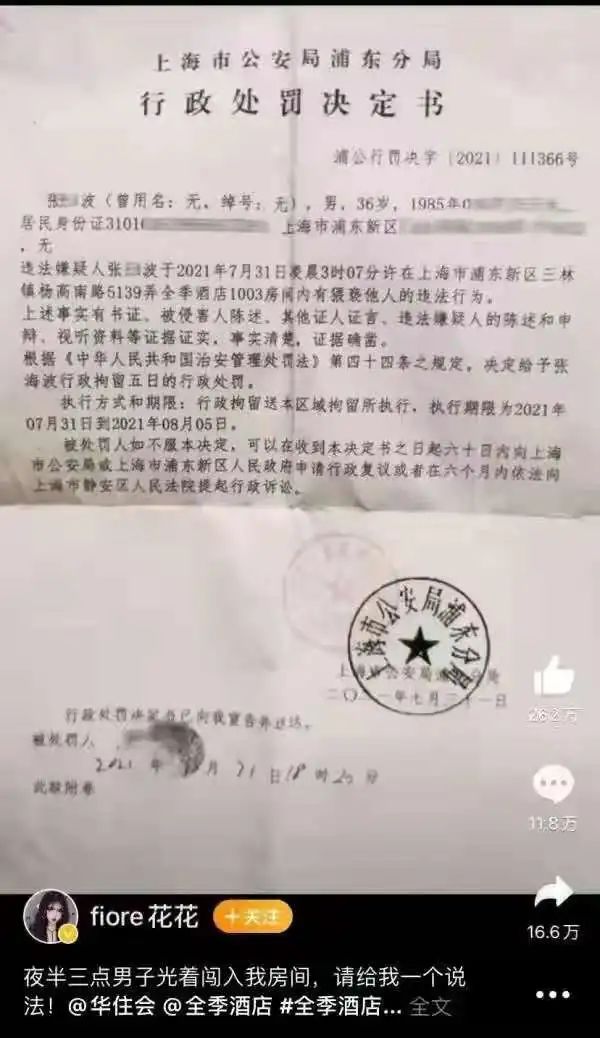 上海市公安局浦东分局
行政处罚决定书
浦公行罚决字〔2021〕111366号
张 波(曾用名:无,绰号:无),男,36岁,1985年0
居民身份证31010 上海市浦东新区
,无
违法嫌疑人张 波于2021年7月31日凌晨3时07分许在上海市浦东新区三林
镇杨高南路5139弄全季酒店1003房间内有猥亵他人的违法行为。
上述事实有书证、被侵害人陈述、其他证人证言、违法嫌疑人的陈述和申
辩、视听资料等证据证实,事实清楚,证据确凿。
根据《中华人民共和国治安管理处罚法》第四十四条之规定,决定给予张
海波行政拘留五日的行政处罚。
执行方式和期限:行政拘留送本区域拘留所执行,执行期限为2021年
07月31日到2021年08月05日。
被处罚人如不服本决定,可以在收到本决定书之日起六十日内向上海
市公安局或上海市浦东新区人民政府申请行政复议或者在六个月内依法向
上海市静安区人民法院提起行政诉讼。
上海市公安局浦东分局
上海市公安局浦东分局
二〇二一年七月三十一日
行政处罚决定书已向我宣告并送达。
被处罚人
2021 年 月 31 日 18 时 20 分
此联附卷
26.2万
11.8万
16.6万
fiore花花
+关注
夜半三点男子光着闯入我房间,请给我一个说
法!@华住会 @全季酒店 #全季酒店... 全文